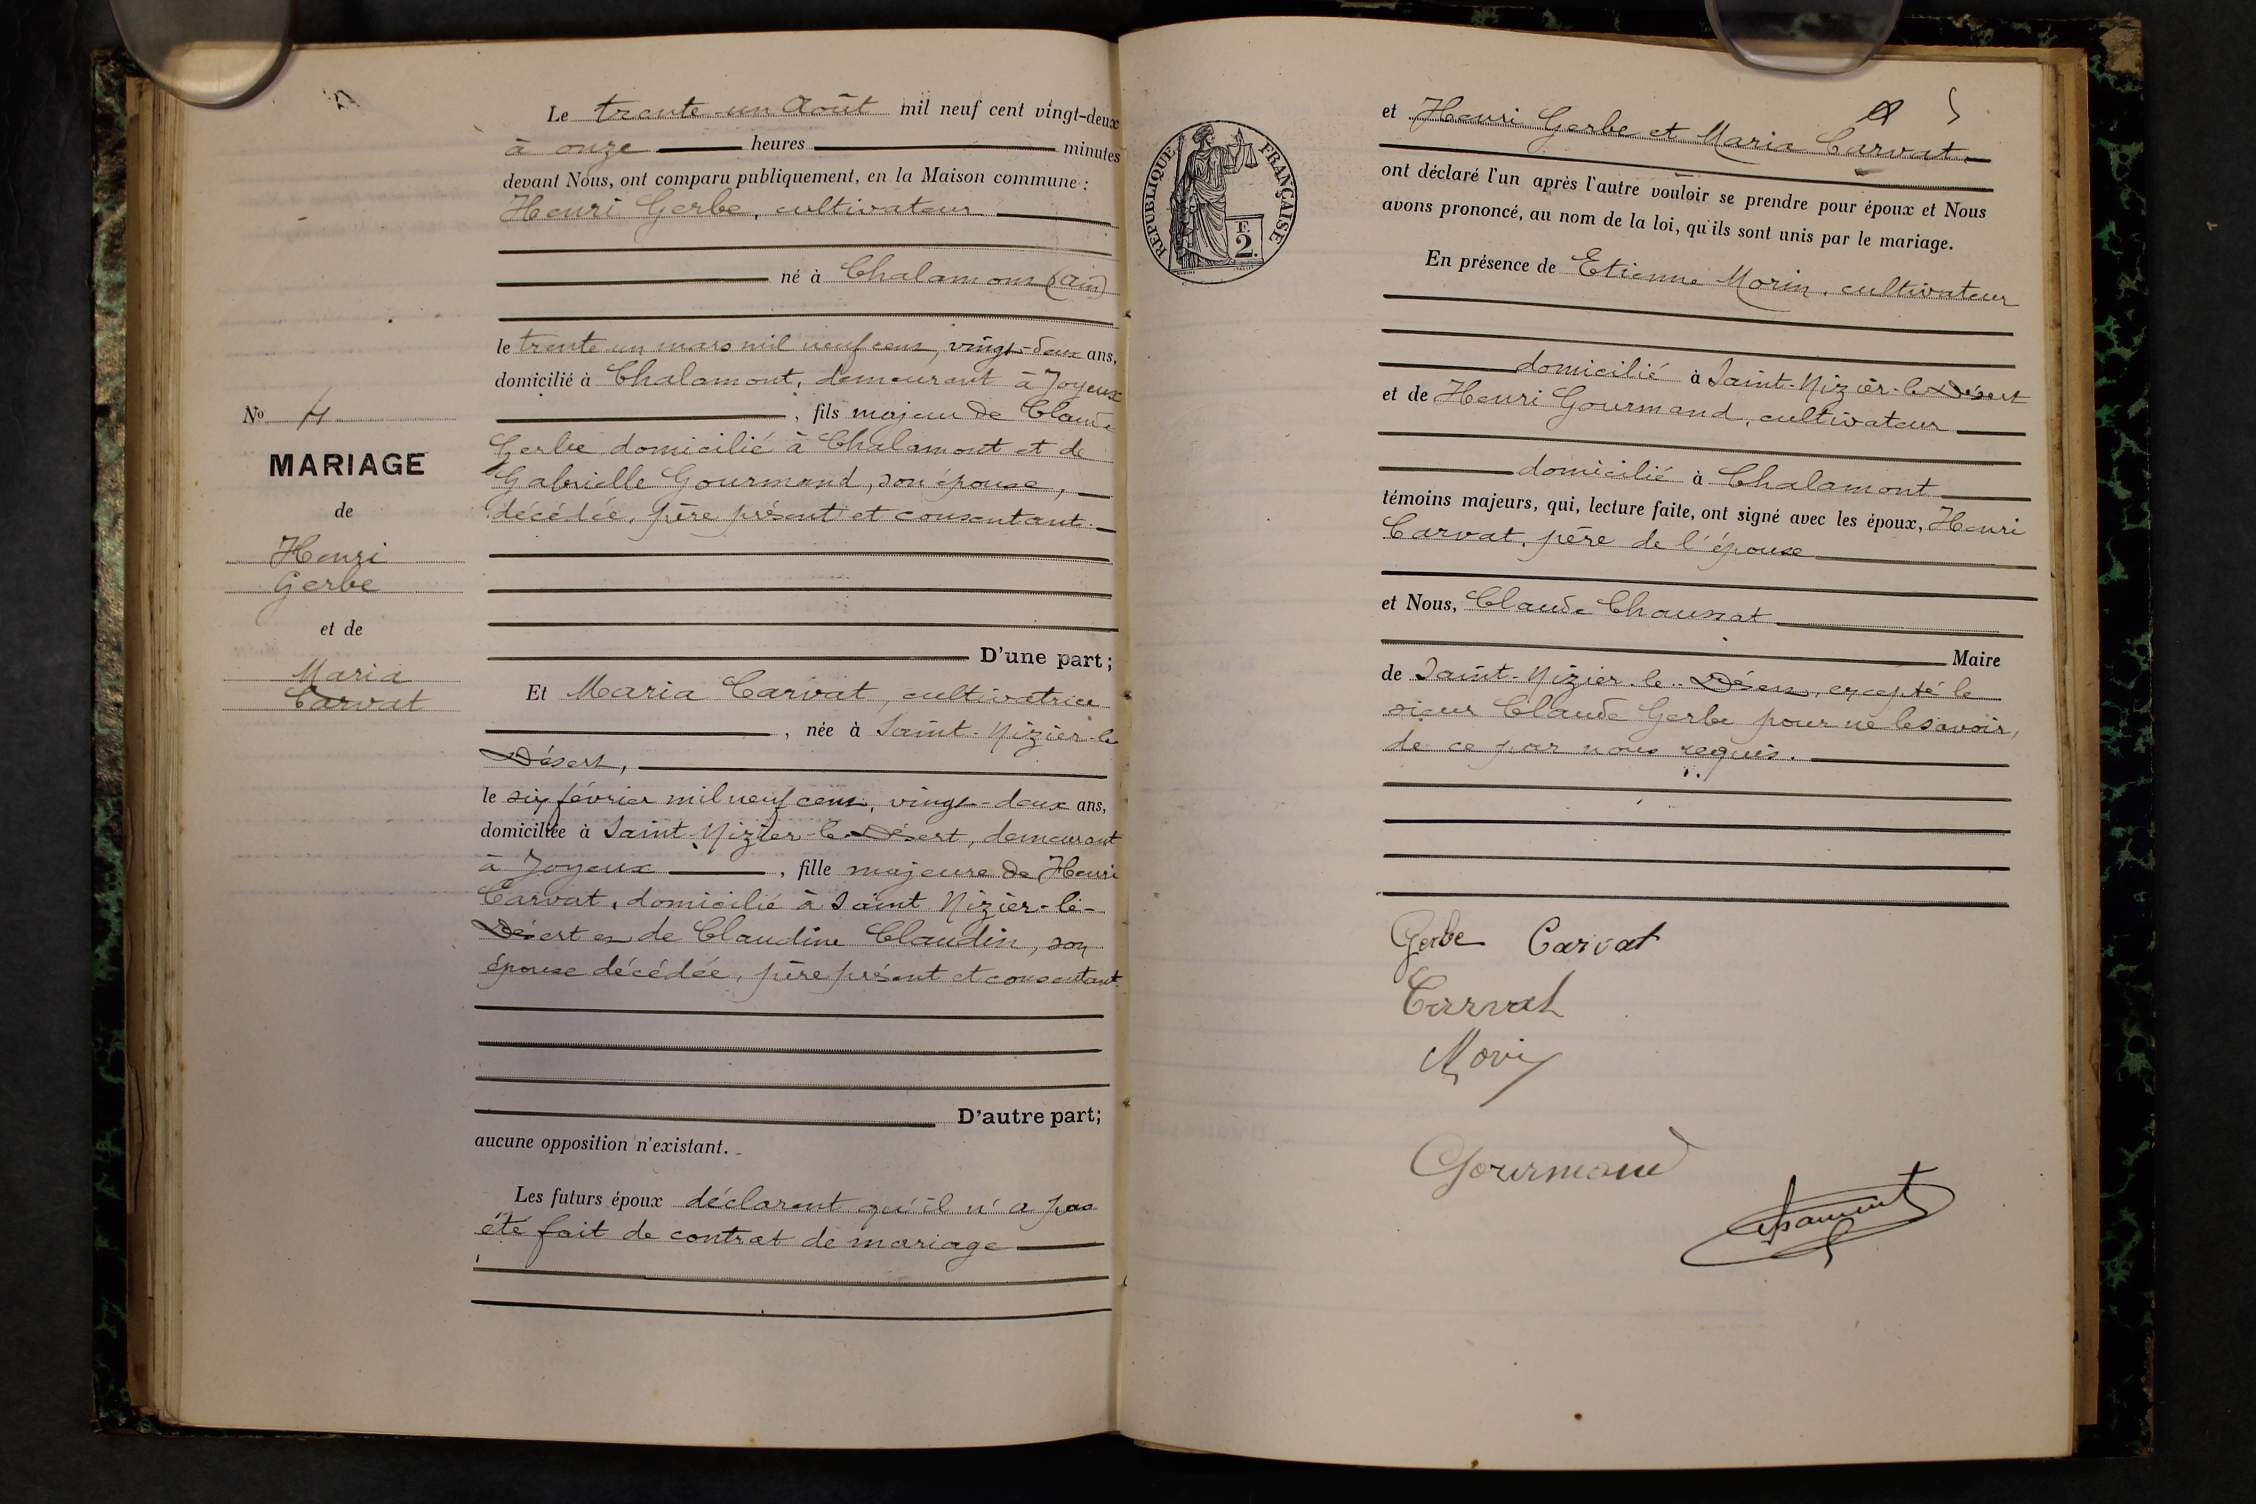 Le trente-un Août mil neuf cent vingt-deux
à onze heures minutes
devant Nous, ont comparu publiquement, en la Maison commune :
Henri Gerbe, cultivateur
né à Chalamont (Ain)
le trente un mars mil neuf cent, vingt-deux ans,
domicilié à Chalamont, demeurant à Joyeux
, fils majeur de Claude
Gerbe domicilié à Chalamont et de
Gabrielle Gourmand, son épouse,
décédée, père présent et consentant.
No 4
MARIAGE
de
Henri
Gerbe
et de
Maria
Carvat
D'une part;
Et Maria Carvat, cultivatrice
, née à Saint-Nizier-le
Désert,
le six février mil neuf cent, vingt-deux ans,
domiciliée à Saint-Nizier-le-Désert, demeurant
à Joyeux , fille majeure de Henri
Carvat, domicilié à Saint Nizier-le-
Désert et de Claudine Claudin, son
épouse décédée, père présent et consentant.
D'autre part;
aucune opposition n'existant.
Les futurs époux déclarent qu'il n'a pas
été fait de contrat de mariage
REPUBLIQUE FRANÇAISE
F.
2.
et Henri Gerbe et Maria Carvat.
ont déclaré l'un après l'autre vouloir se prendre pour époux et Nous
avons prononcé, au nom de la loi, qu'ils sont unis par le mariage.
En présence de Etienne Morin, cultivateur
domicilié à Saint-Nizier-le-Désert
et de Henri Gourmand, cultivateur
domicilié à Chalamont
témoins majeurs, qui, lecture faite, ont signé avec les époux, Henri
Carvat, père de l'épouse
et Nous, Claude Chaussat
Maire
de Saint-Nizier-le-Désert, excepté le
sieur Claude Gerbe pour ne le savoir,
de ce par nous requis.
Gerbe Carvat
Carvat
Morin
Gourmand